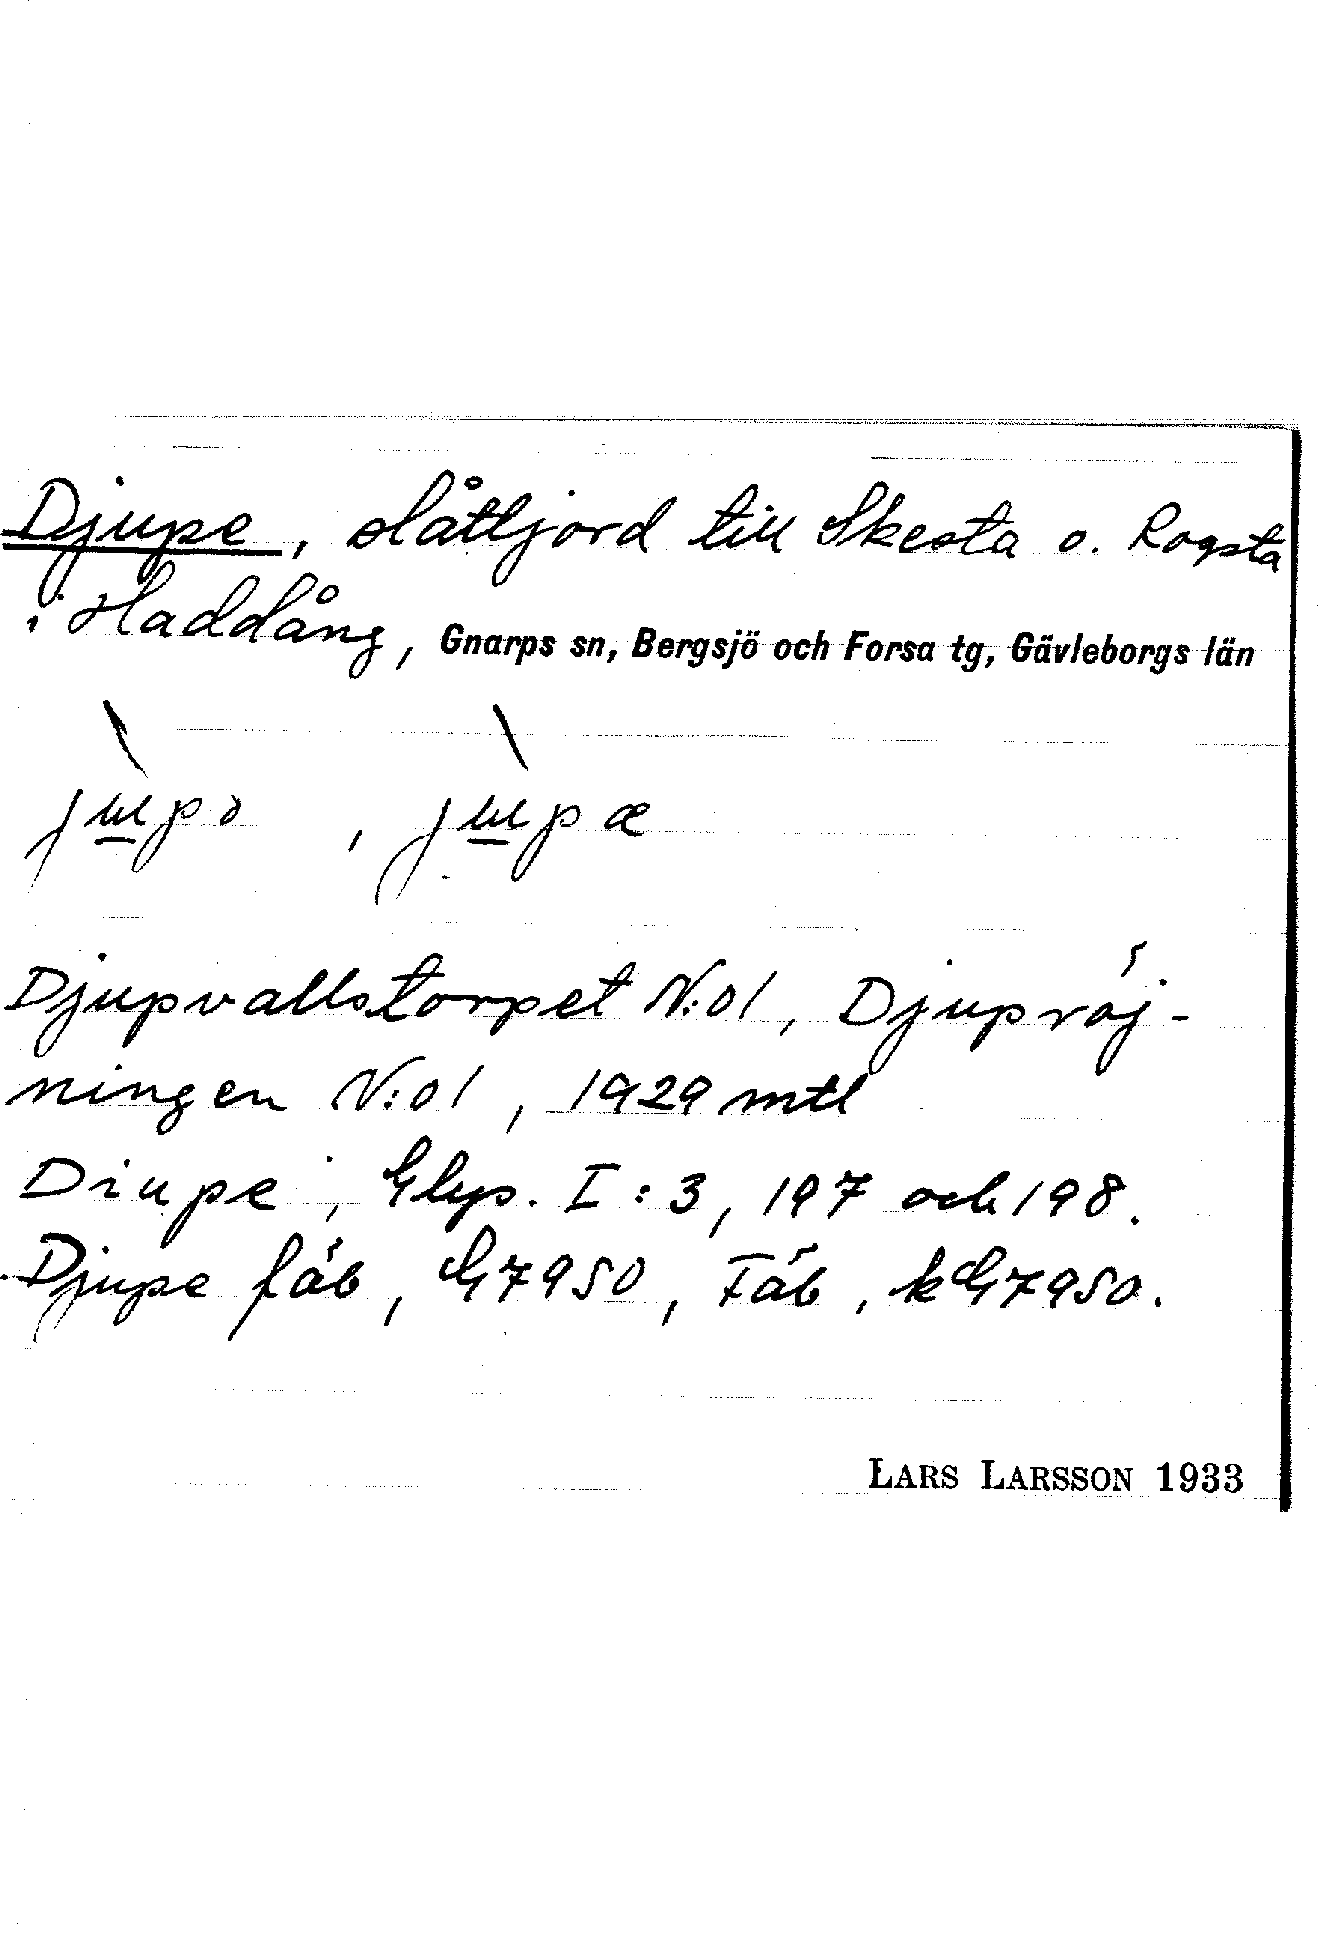 Djupe, slåttjord till Skesta o. Rogsta
i Haddång, Gnarps sn, Bergsjö och Forsa tg, Gävleborgs län
Djupvallstorpet N:o1, Djupröj-
ningen N:o1, 1929 mtl
Diupe, Glys. I:3, 197 och 198.
Djupe fäb, G7950, Fäb, kG7950.
LARS LARSSON 1933